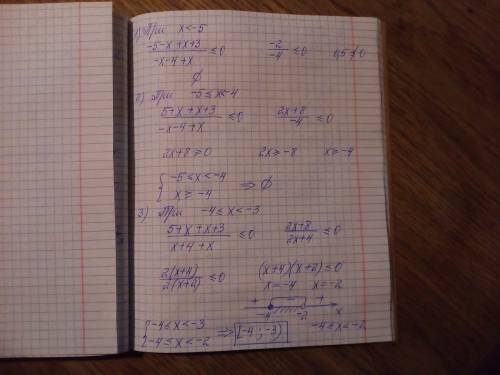 1) При x<-5
(-5-x+x+3)/(-x-4+x) ≤0   -2/-4 ≤0   0,5≰0
∅
2) При -5≤x<-4
(5+x+x+3)/(-x-4+x) ≤0   (2x+8)/-4 ≤0
2x+8≥0   2x≥-8   x≥-4
{ -5≤x<-4
x≥-4 ⇒ ∅
3) При -4≤x<-3
(5+x+x+3)/(x+4+x) ≤0   (2x+8)/(2x+4) ≤0
2(x+4)/2(x+2) ≤0   (x+4)(x+2)≤0
x=-4   x=-2
+ - +
-4 -2 x
{ -4≤x<-3 ⇒ [-4;-3)   -4≤x<-2
-4≤x<-2